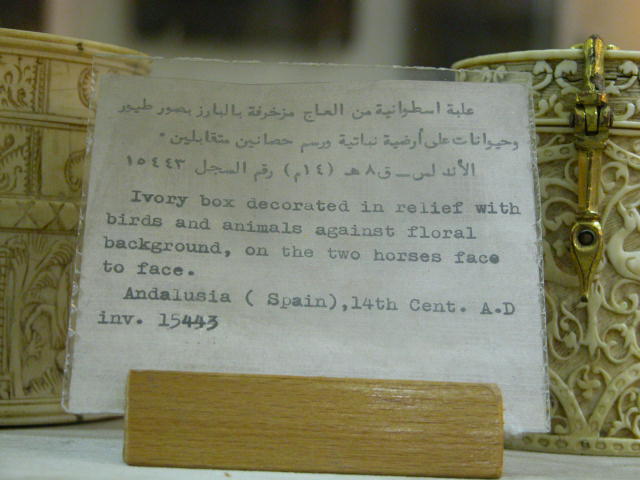 علبة اسطوانية من العاج مزخرفة بالبارز بصور طيور
وحيوانات على أرضية نباتية ورسم حصانين متقابلين ٠
الأندلس — ق٨هـ (١٤م) رقم السجل ١٥٤٤٣
Ivory box decorated in relief with
birds and animals against floral
background, on the two horses face
to face.
Andalusia ( Spain),14th Cent. A.D
inv. 15443